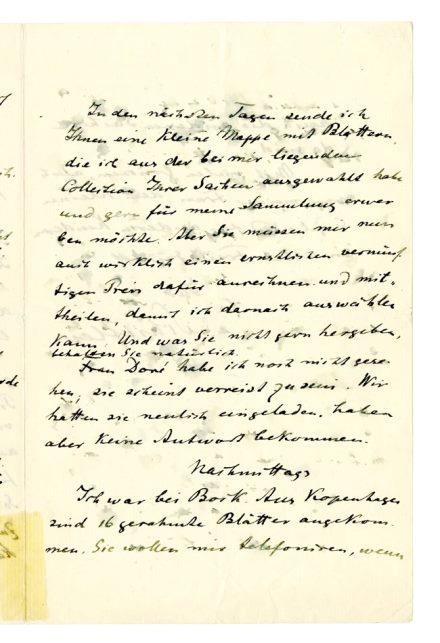 In den nächsten Tagen sende ich
Ihnen eine kleine Mappe mit Blättern
die ich aus der bei mir liegenden
Collection Ihrer Sachen ausgewählt habe
und gern für meine Sammlung erwer
ben möchte. Aber Sie müssen mir nun
auch wirklich einen ernstlichen vernünf
tigen Preis dafür anrechnen und mit-
theilen, damit ich darnach auswählen
kann. Und was Sie nicht gern hergeben,
behalten Sie natürlich.
Frau Doré habe ich noch nicht gese-
hen, sie scheint verreist zu sein. Wir
hatten sie neulich eingeladen, haben
aber keine Antwort bekommen.
Nachmittags
Ich war bei Bock. Aus Kopenhagen
sind 16 gerahmte Blätter angekom
men. Sie wollen mir telefoniren, wenn